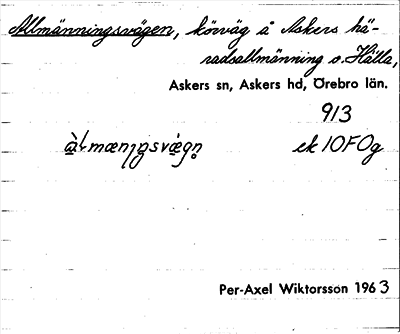 Allmänningsvägen, körväg å Askers hä-
radsallmänning o. Hälla,
Askers sn, Askers hd, Örebro län.
913
ek 10F0g
Per-Axel Wiktorsson 1963